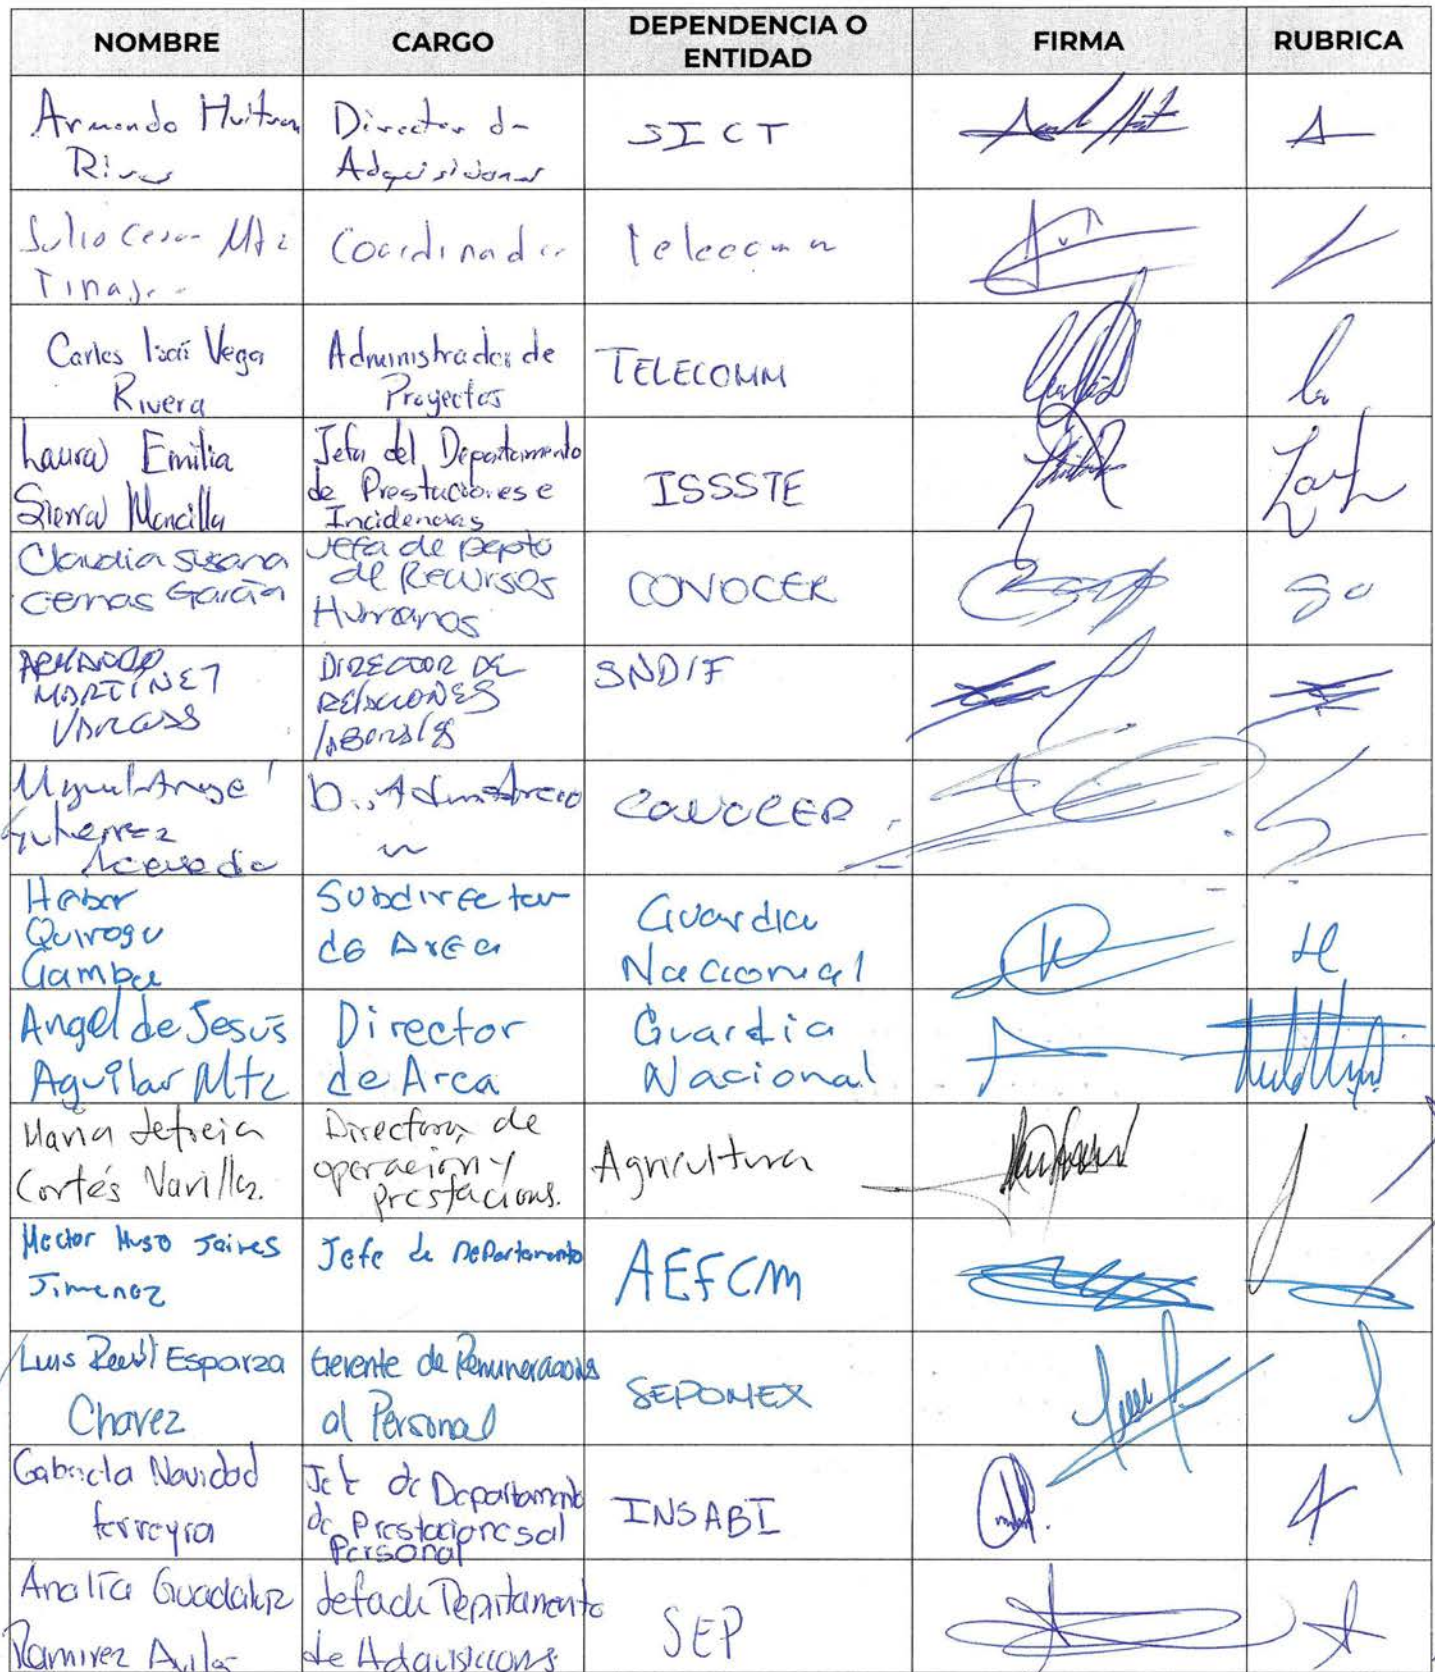 NOMBRE
CARGO
DEPENDENCIA O
ENTIDAD
FIRMA
RUBRICA
Armando Huitron
Rivas
Director de
Adquisiciones
SICT
Julio Cesar Mtz
Coordinador
Telecomm
Carlos Isaí Vega
Rivera
Administrador de
Proyectos
TELECOMM
Laura Emilia
Sierra Mancilla
Jefa del Departamento
de Prestaciones e
Incidencias
ISSSTE
Claudia Susana
Cernas García
Jefa de Depto
de Recursos
Humanos
CONOCER
ARMANDO
MARTÍNEZ
VARGAS
DIRECTOR DE
RELACIONES
LABORALES
SNDIF
Miguel Angel
Gutierrez
Acevedo
CONOCER
Heber
Quiroga
Gamba
Subdirector
de Area
Guardia
Nacional
Angel de Jesús
Aguilar Mtz
Director
de Area
Guardia
Nacional
María
Cortés
Directora de
operación y
prestacions.
Agricultura
Hector Hugo Jaimes
Jimenez
Jefe de Departamento
AEFCM
Luis Raúl Esparza
Chavez
Gerente de Remuneraciones
al Personal
SEPOMEX
Gabriela Navidad
Ferreyra
Jefe de Departamento
de Prestaciones al
Personal
INSABI
Analía Guadalupe
Ramirez
Jefa de Departamento
de Adquisicions
SEP